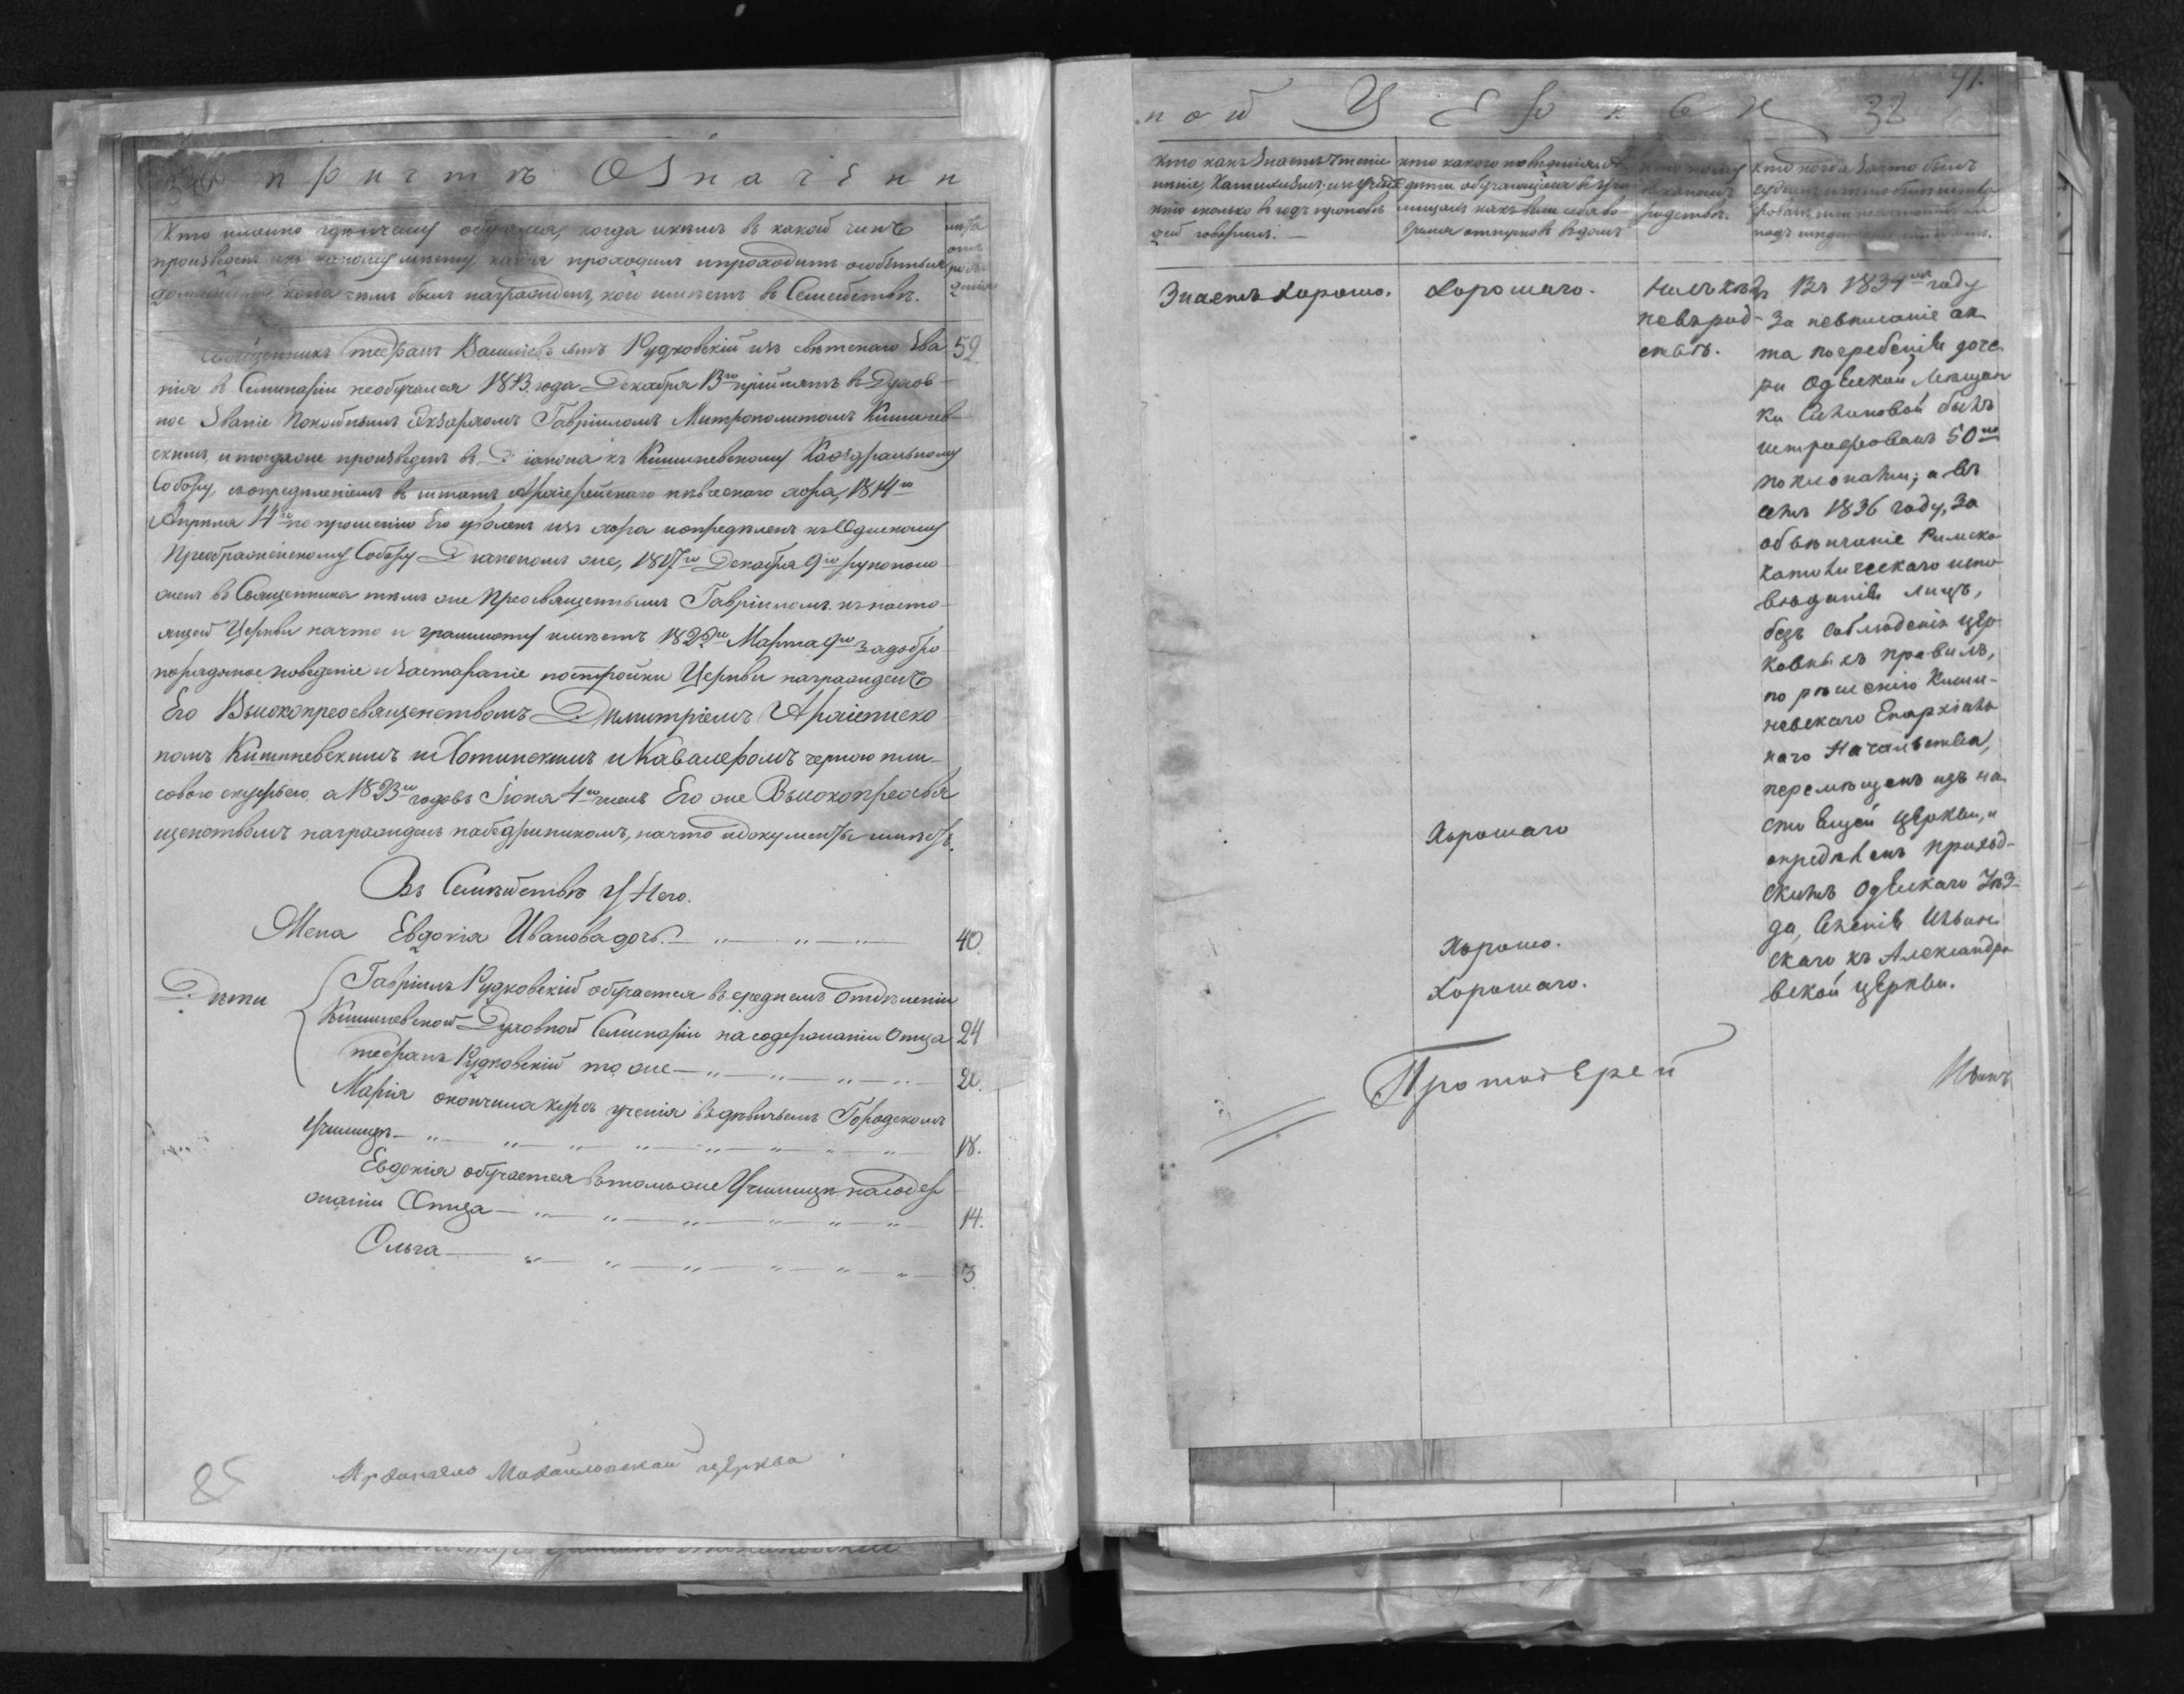 причтъ Означенн
Кто именно где и чему обучался, когда и кемъ въ какой чинъ
произведенъ и къ какому месту, какія проходилъ и проходитъ особенныя
должности, когда чемъ былъ награжденъ, кого имеетъ въ Семействе.
Священникъ Стефанъ Васильевъ сынъ Рудковскій изъ светскаго зва 52
нія въ Семинаріи необучался 1813 года Декабря 13го прійнятъ въ Духов-
ное Званіе Покойнымъ Экзархомъ Гавріиломъ Митрополитомъ Кишинев-
скимъ, и тогдаже произведенъ въ Діакона къ Кишиневскому Кафедральному
Собору, съ определеніемъ въ штатъ Архіерейскаго певческаго хора, 1814го
Апреля 14го по прошенію Его уволенъ изъ хора и определенъ къ Одесскому
Преображенскому Собору Діакономъ же, 1817го Декабря 9го рукополо-
женъ въ Священника темъ же Преосвященнымъ Гавріиломъ къ насто-
ящей Церкви на что и граммоту имеетъ 182 го Марта 9го за добро-
порядочное поведеніе и за стараніе постройки Церкви награжденъ
Его Высокопреосвященствомъ Димитріемъ Архіеписко-
помъ Кишиневскимъ и Хотинскимъ и Кавалеромъ черною пли-
совою скуфьею, а 1823го годовъ Іюня 4го имъ Его же Высокопреосвя
щенствомъ награжденъ набедренникомъ, на что и документы имеетъ.
Въ Семействе У Него.
Жена Евдокія Иванова дочь. 40
Дети Гавріилъ Рудковскій обучается въ среднемъ отделеніи
Кишиневской Духовной Семинаріи на содержаніи Отца 24
Стефанъ Рудковскій то же 20.
Марія окончила курсъ ученія въ девичьемъ Городскомъ
Училище 18.
Евдокія обучается въ томъ же Училище на содер
жаніи Отца 14.
Ольга 3
85 Архангело Михайловская церква
ной Церкви 38
91.
Кто какъ Знаетъ чтеніе
пеніе, Катихизисъ
кто сколько въ годъ пропове
дей говорилъ.
кто какого поведенія
дети обучающіяся въ учи
лищахъ какъ вели себя во
время отпусковъ въ домъ
кто кому
въ какомъ
родстве.
Кто когда За что былъ
судимъ
Знаетъ Хорошо.
Хорошаго.
Ни съ кемъ
не въ род-
стве.
Въ 1834мъ году
За невписаніе ак
та погребенія доче
ри Одесской Мещан
ки Сычиковой былъ
штрафованъ 50ю
поклонами; а въ
семъ 1836 году, За
обвенчаніе Римско
Католическаго испо-
веданія лицъ,
безъ соблюденія цер-
ковныхъ правилъ,
по решенію Киши-
невскаго Епархіаль
наго Начальства,
перемещенъ изъ на
стоящей церкви, и
определенъ приход-
скимъ Одесскаго Уез-
да, Селенія
скаго къ Александро
вской церкви.
Хорошаго
Хорошо.
Хорошаго.
Протоіерей